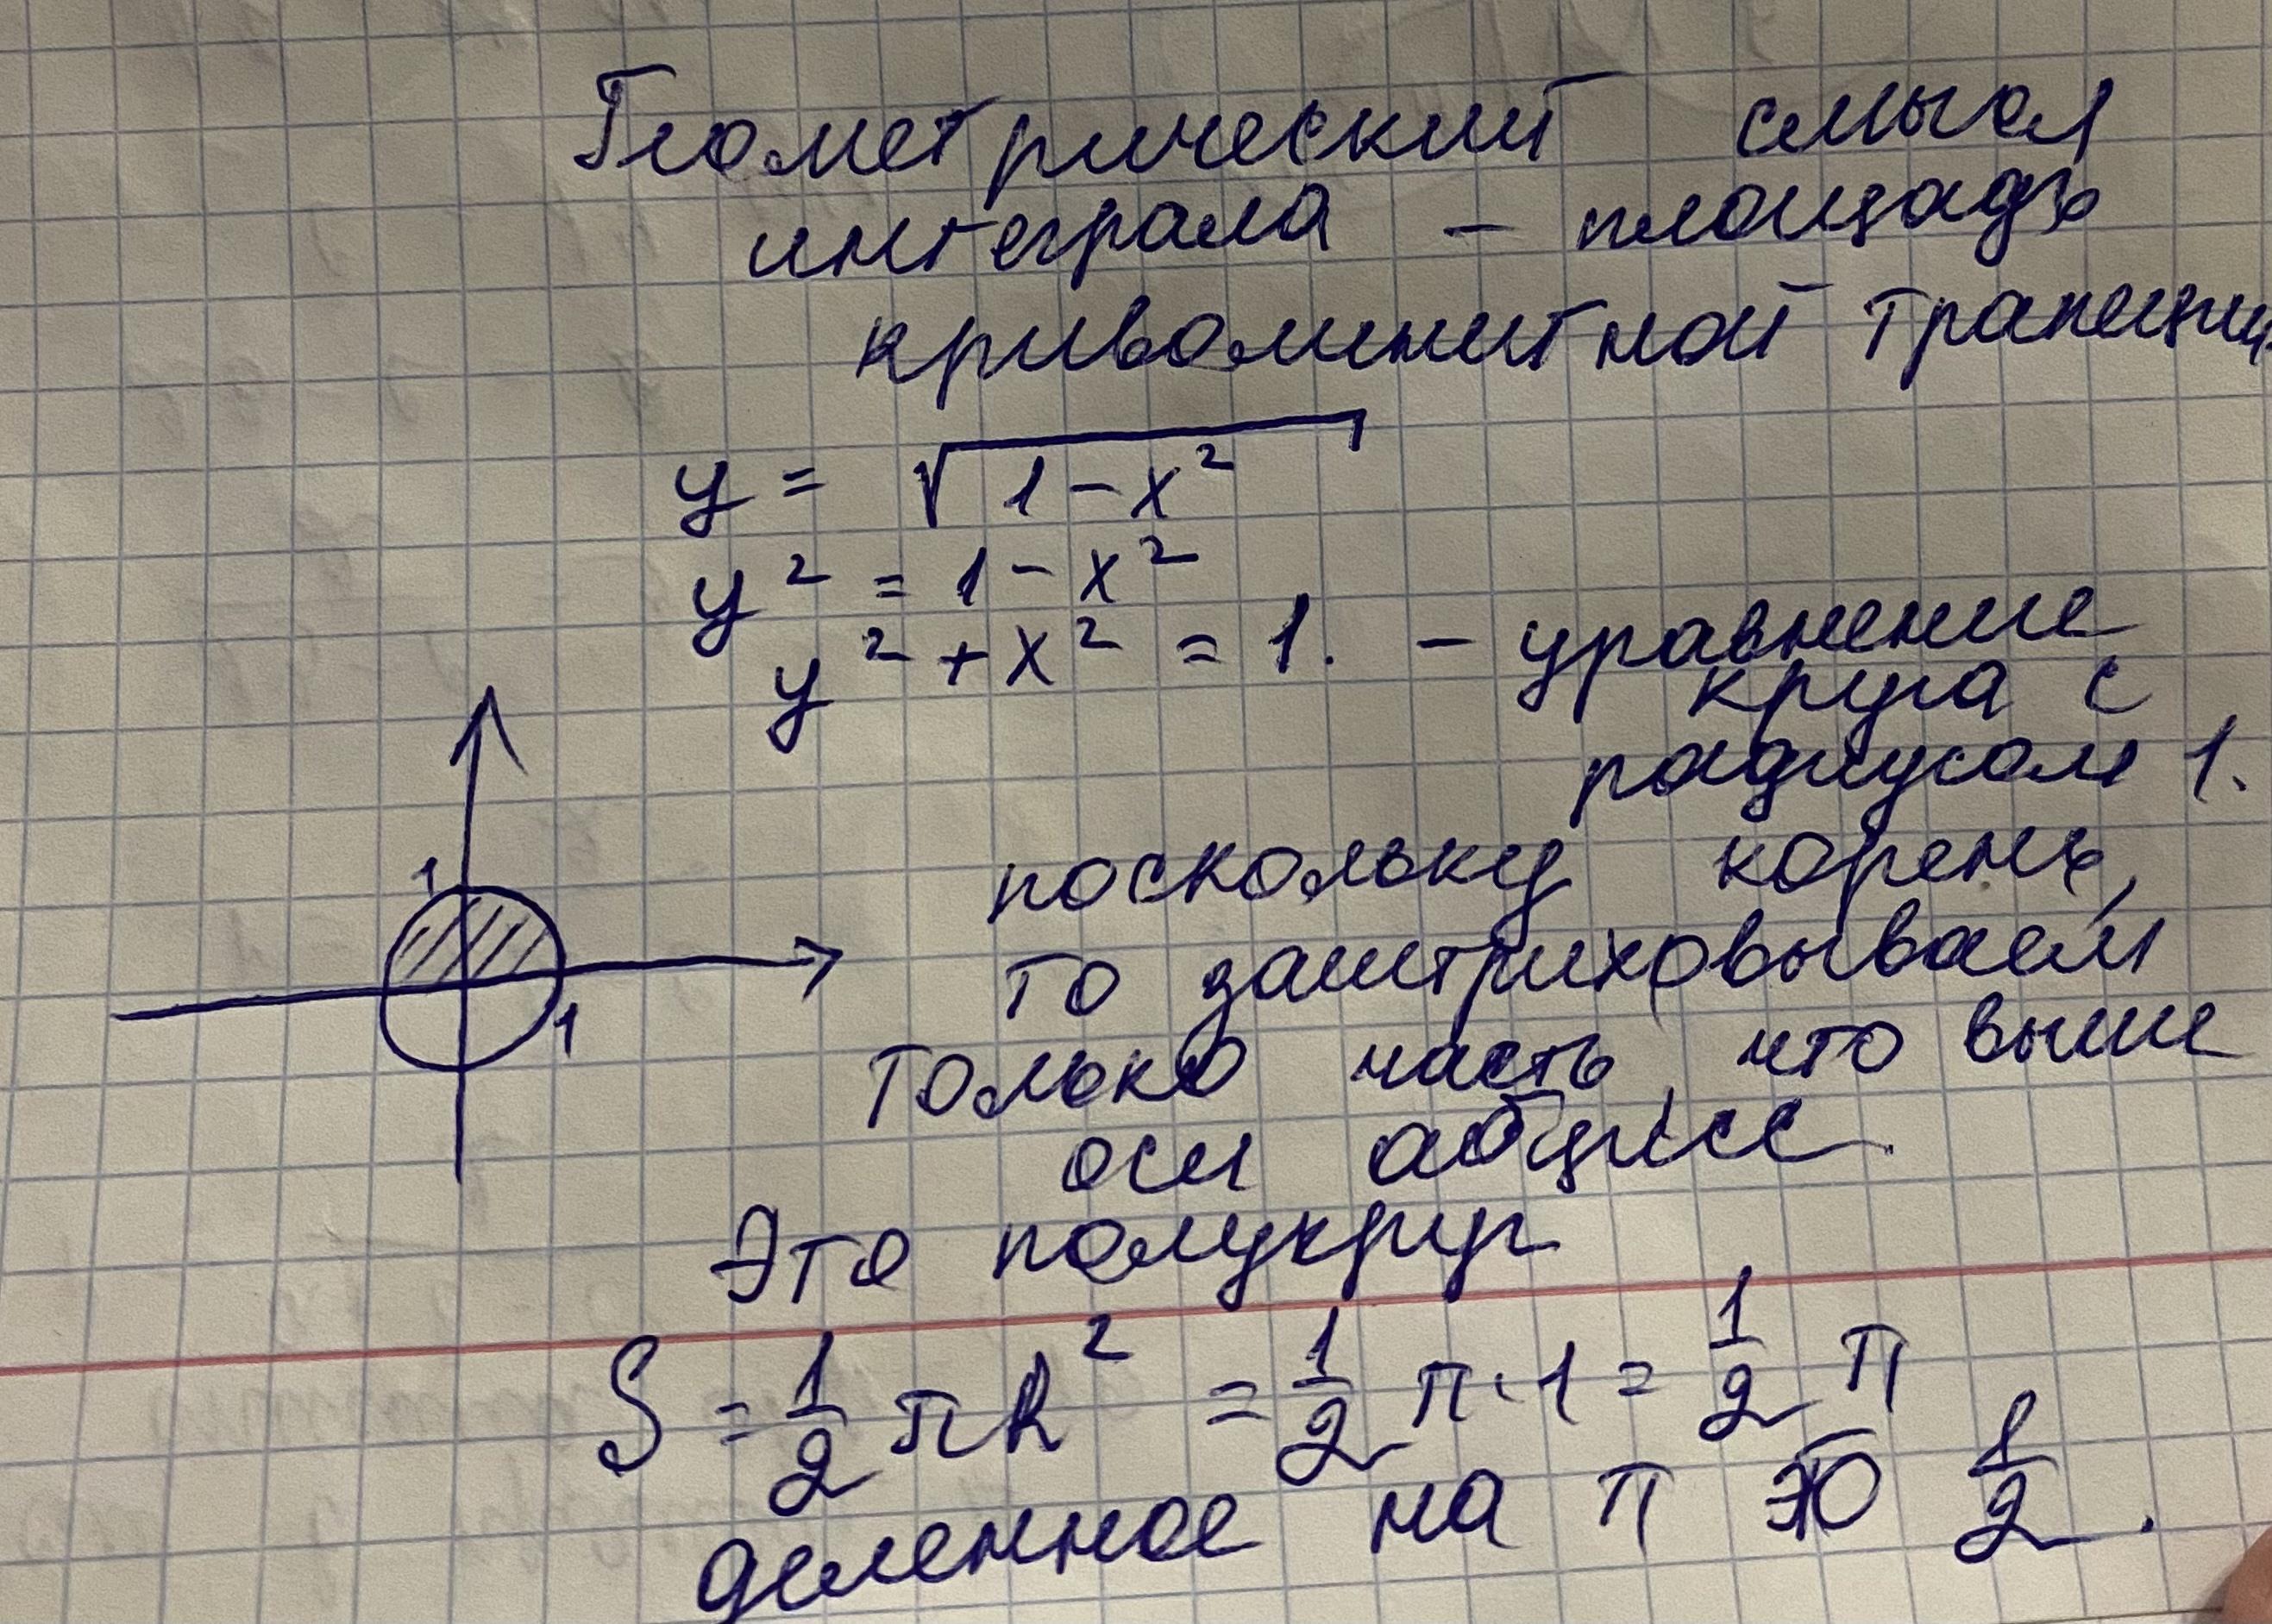 Геометрический смысл
интеграла – площадь
криволинитной трапеции.
y = √1-x²
y² = 1-x²
y² + x² = 1. – уравнение
круга с
радиусом 1.
1
1
поскольку корень,
то заштриховываем
только часть, что выше
оси абцисс.
Это полукруг
S = 1/2 πR² = 1/2 π·1 = 1/2 π
деленное на π это 1/2.